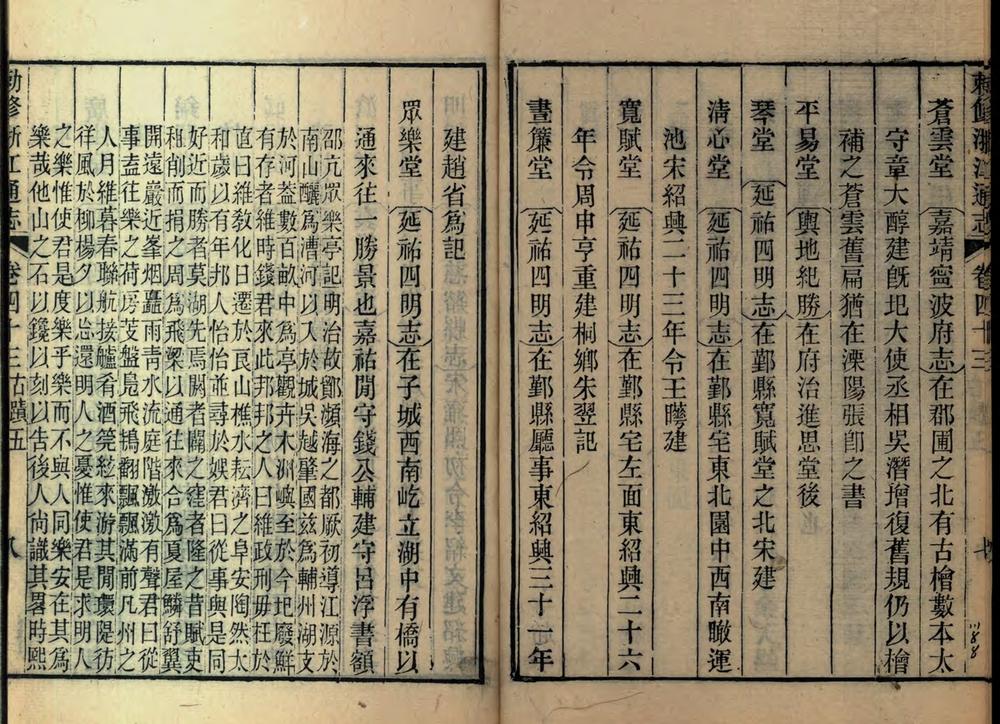 敕修浙江通志 卷四十三 七
蒼雲堂 嘉靖寧波府志在郡圃之北有古檜數本太
守章大醇建旣圯大使丞相吳潛增復舊規仍以檜
補之蒼雲舊扁猶在溧陽張卽之書
平易堂 輿地紀勝在府治進思堂後
琴堂 延祐四明志在鄞縣寬賦堂之北宋建
淸心堂 延祐四明志在鄞縣宅東北園中西南瞰運
池宋紹興二十三年令王曮建
寬賦堂 延祐四明志在鄞縣宅左面東紹興二十六
年令周申亨重建桐鄉朱翌記
晝簾堂 延祐四明志在鄞縣廳事東紹興三十一年
建趙省爲記
眾樂堂 延祐四明志在子城西南屹立湖中有橋以
通來往一勝景也嘉祐閒守錢公輔建守呂浮書額
邵亢眾樂亭記明治故鄮瀕海之都厥初導江源於
南山釃爲漕河以入於城吳越肇國茲爲輔州湖支
於河葢數百畝中爲亭觀卉木洲嶼至於今圯廢鮮
有存者維時錢君來此邦邦之人曰維政刑毋枉於
直曰維敎化日遷於良山樵水耘濟之阜安陶然太
和歲以有年邦人怡怡並尋於娛君曰從事與是同
好近而勝者莫湖先焉闕者闢之窪者隆之昔賦吏
租削而捐之周爲飛梁以通往來合爲夏屋鱗舒翼
開遠巖近峯烟矗雨靑水流庭階激激有聲君曰從
事盍往樂之荷房芡盤鳧飛鴇翻飄飄滿前凡州之
人月維暮春聯航接艫肴酒筦絃來游其閒環隄彷
徉風於柳楊夕以忘還明人之憂惟使君是求明人
之樂惟使君是度樂乎樂而不與人同樂安在其爲
樂哉他山之石以鑱以刻以告後人尙識其畧時熙
敕修浙江通志 卷四十三 古蹟五 八